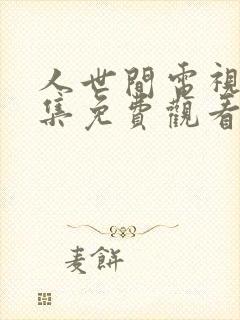 人世間電視
集免費觀看
麦餅